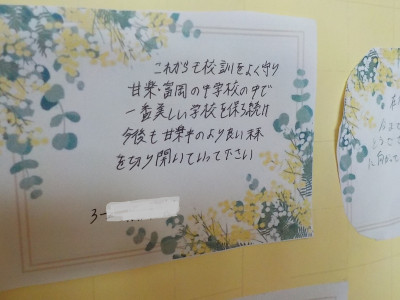 これからも校訓をよく守り
甘楽・富岡の中学校の中で
一番美しい学校を保ち続け
今後も甘楽中のより良い様
を切り開いていって下さい
3-